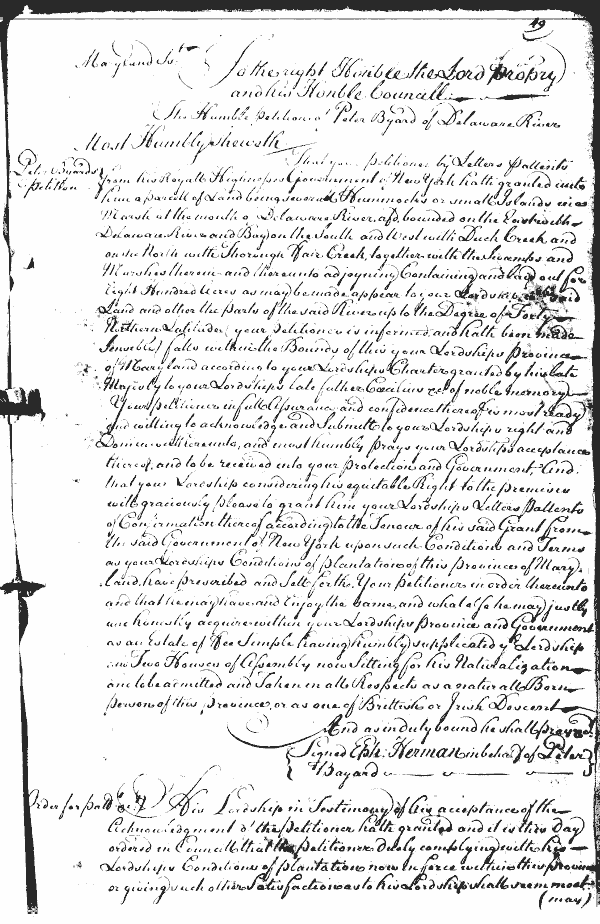 49
Maryland Ss.
To the right Honble the Lord propry
and his Honble Councill
The Humble petition of Peter Byard of Delaware River
Most Humbly sheweth
Peter Byards
petition
That your petitioner by Letters pattents
from his Royall Highnesses Government of New York hath granted unto
him a parcell of Land being severall Hummocks or small Islands in a
Marsh at the mouth of Delaware River, bounded on the East with
Delaware River and Bay, on the South and West with Duck Creek and
on the North with Thorough Fair Creek, together with the swamps and
Marshes therein and thereunto adjoyning Containing and laid out for
Eight Hundred Acres as may be made appear to your Lordship said
Land and other the parts of the said River up to the Degree of Forty
Northern Latitude (your petitioner is informed and hath been made
sensible) falls within the Bounds of this your Lordships Province
of Maryland according to your Lordships Charter granted by his late
Majesty to your Lordships late father Cecilius &c. of noble memory
Your petitioner in full Assurance and confidence thereof is most ready
and willing to acknowledge and submitt to your Lordships right and
Dominion thereunto, and most humbly prays your Lordships acceptance
thereof, and to be received into your protection and Government, And
that your Lordship considering his equitable Right to the premises
will graciously please to grant him your Lordships Letters pattents
of Confirmation thereof according to the Tenour of his said Grant from
the said Government of New York upon such Conditions and Terms
as your Lordships Conditions of plantation of this Province of Mary
land, have prescribed and sett forth. Your Petitioner in order thereunto
and that he may have and Enjoy the same, and what else he may justly
and honestly acquire within your Lordships Province and Government
as an Estate of Fee Simple having humbly supplicated yr Lordship
and Two Houses of Assembly now Sitting for his Naturalization
and to be admitted and Taken in all Respects as a naturall Born
person of this province, or as one of Brittish or Irish Descent
And as in duty bound he shall pray &c
Signed Eph: Herman in behalf of Peter
Bayard
Order for patt &c.
His Lordship in Testimony of his acceptance of the
Acknowledgment of the petitioner hath granted and it is this Day
ordered in Councill that the petitioner duely complying with his
Lordships Conditions of plantation now in force within this province
or giving such other satisfaction as to his Lordship shall seem meet
(may)